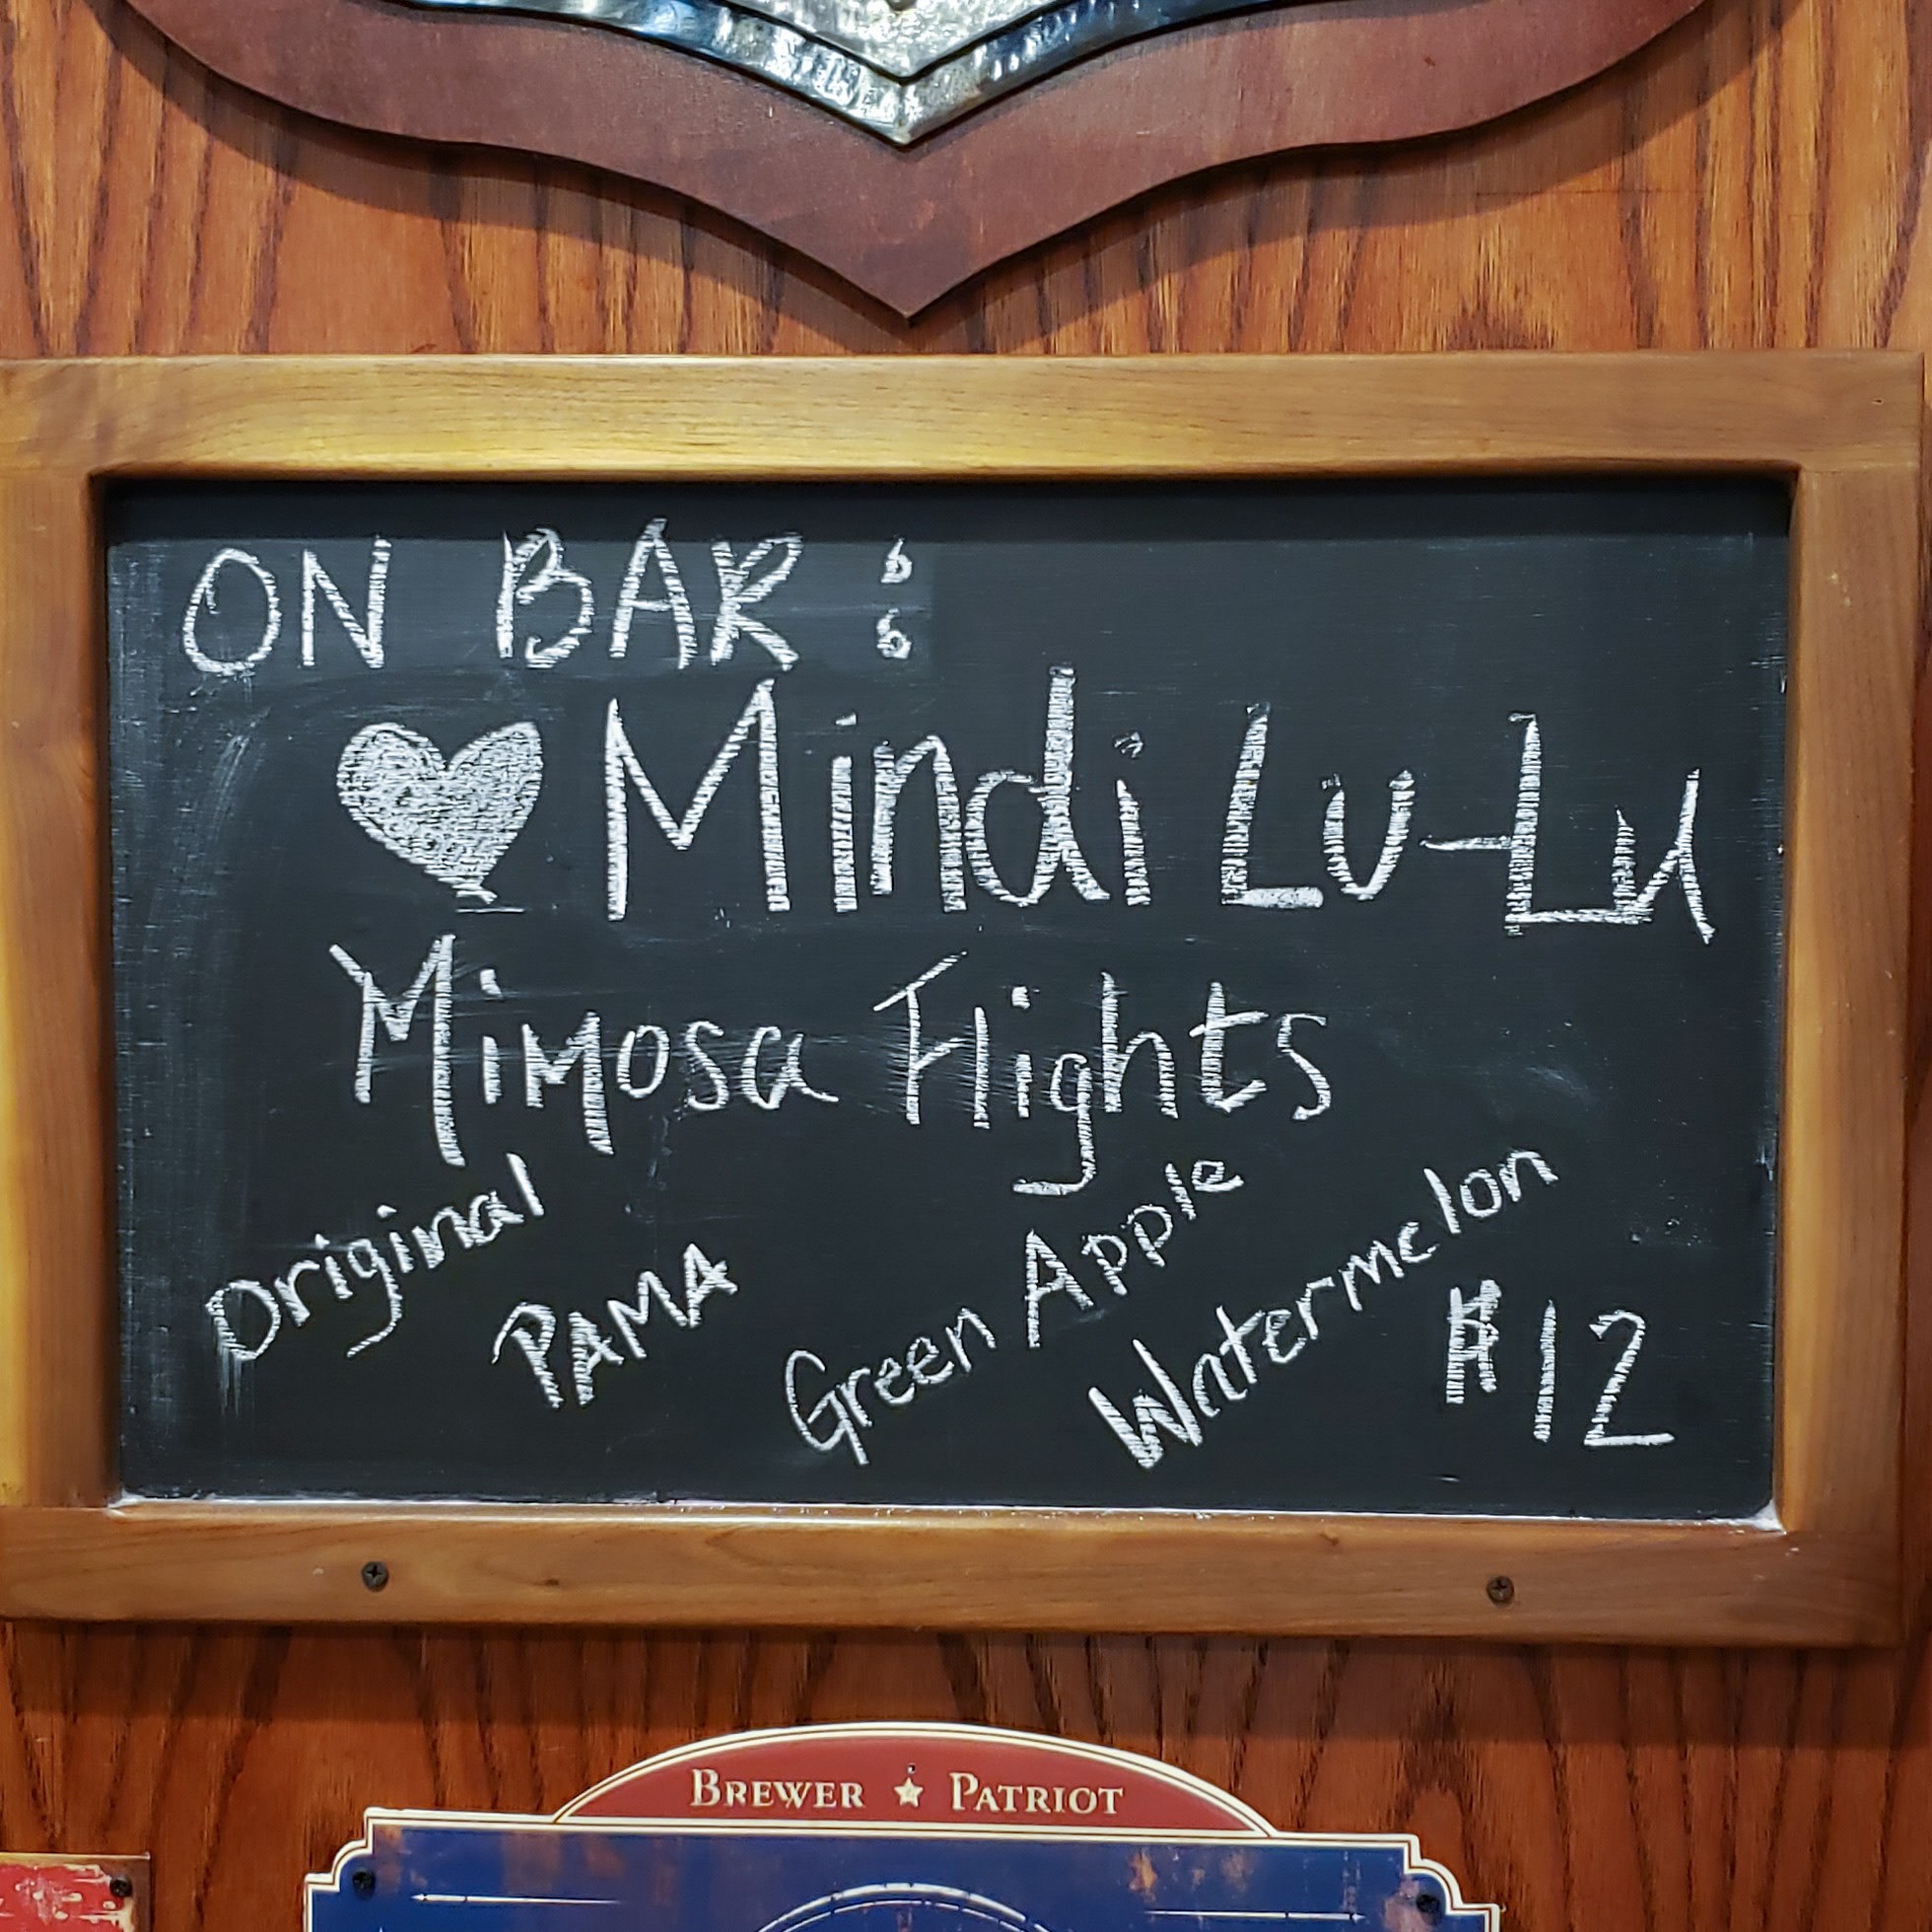 ON BAR:
Mindi Lu-Lu
Mimosa Flights
Original
PAMA
Green Apple
Watermelon
$12
BREWER ★ PATRIOT